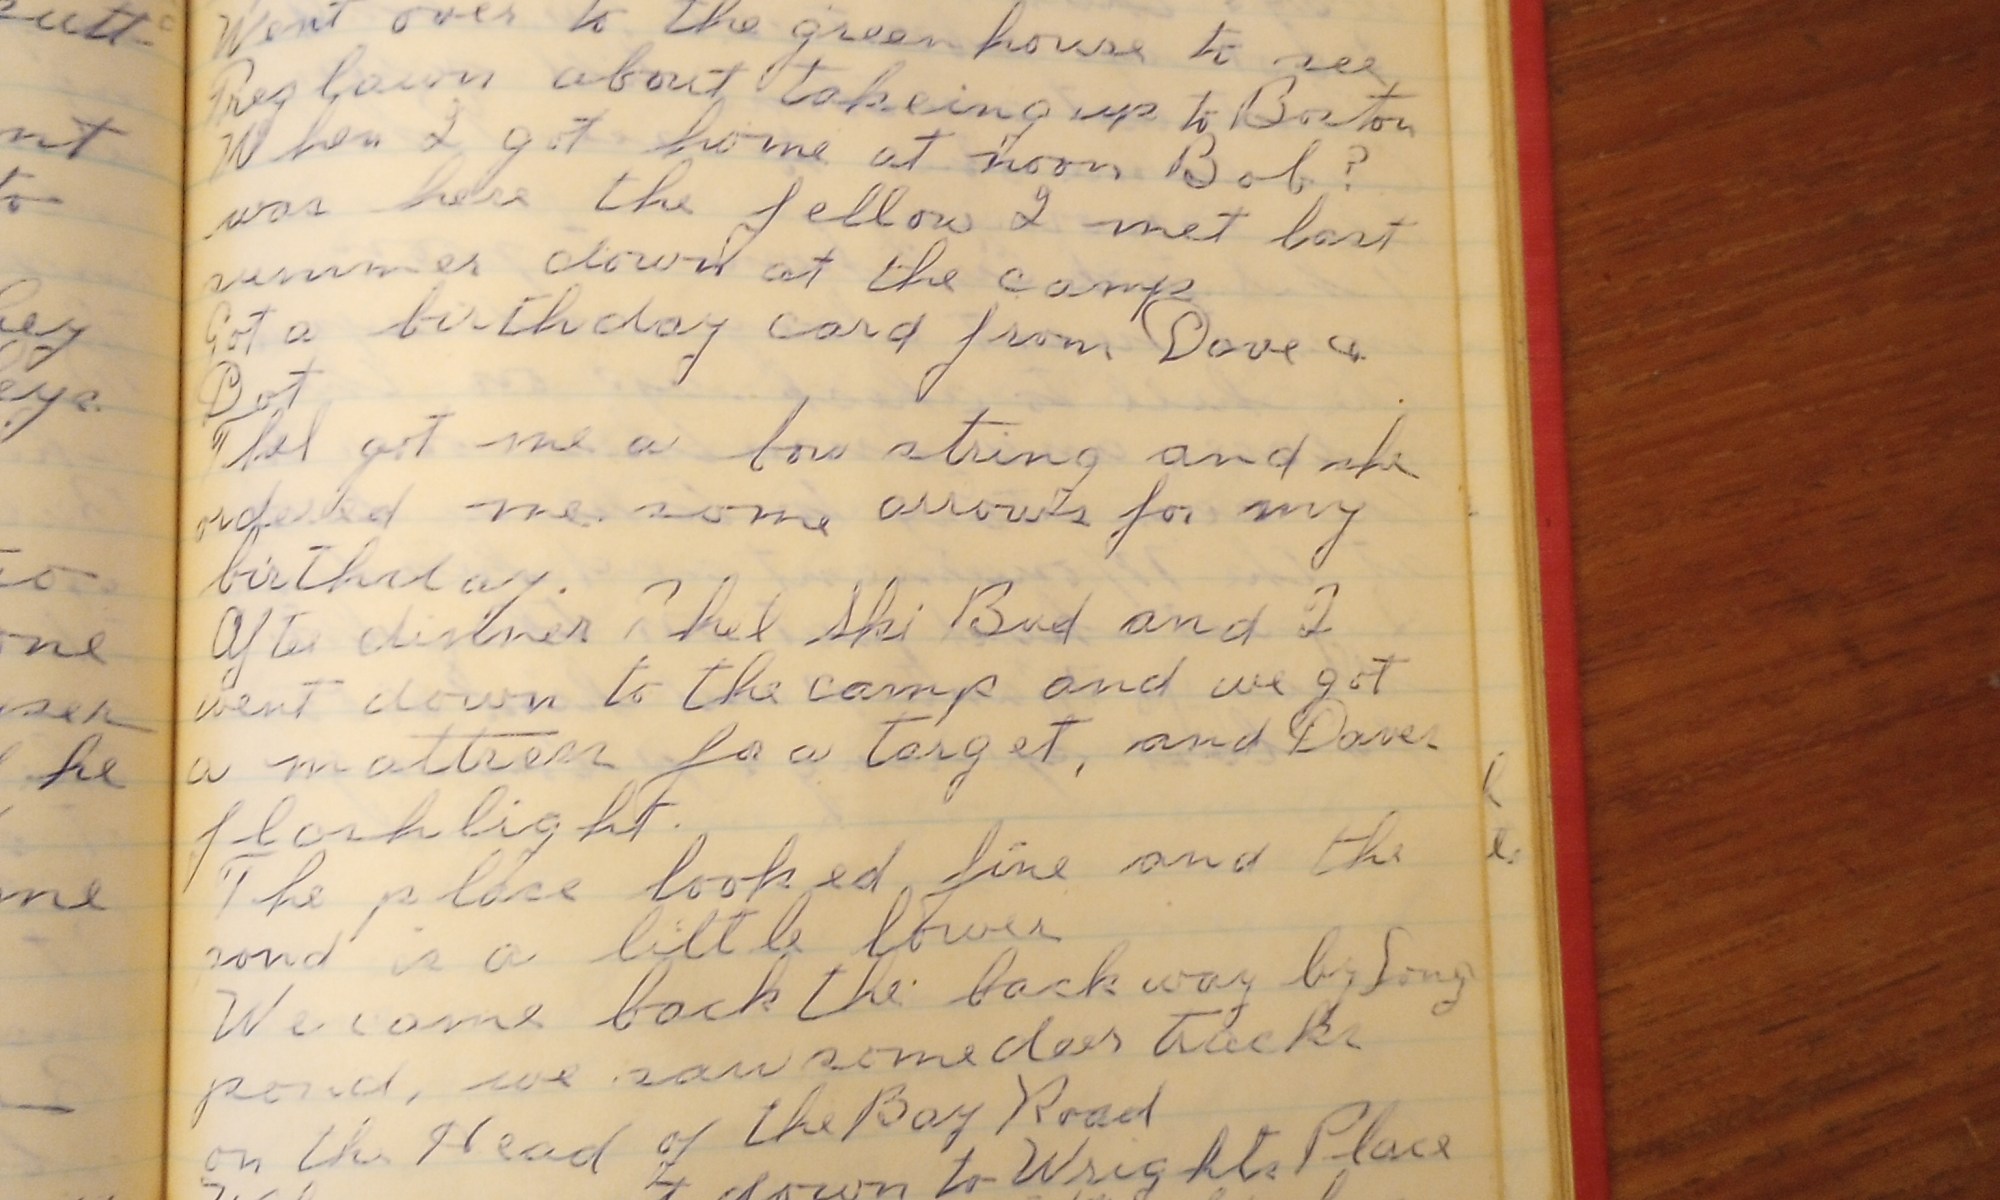 Went over to the greenhouse to see
lawn about takeing up to Boston
When I got home at noon Bob?
was here the fellow I met last
summer down at the camp
Got a birthday card from Dave &
Dot
Thel got me a bow string and she
ordered me some arrows for my
birthday.
After dinner Thel Ski Bud and I
went down to the camp and we got
a mattress for a target, and Daves
flashlight.
The place looked fine and the
pond is a little lower
We came back the back way by Long
pond, we saw some deer tracks
on the Head of the Bay Road
down to Wrights Place